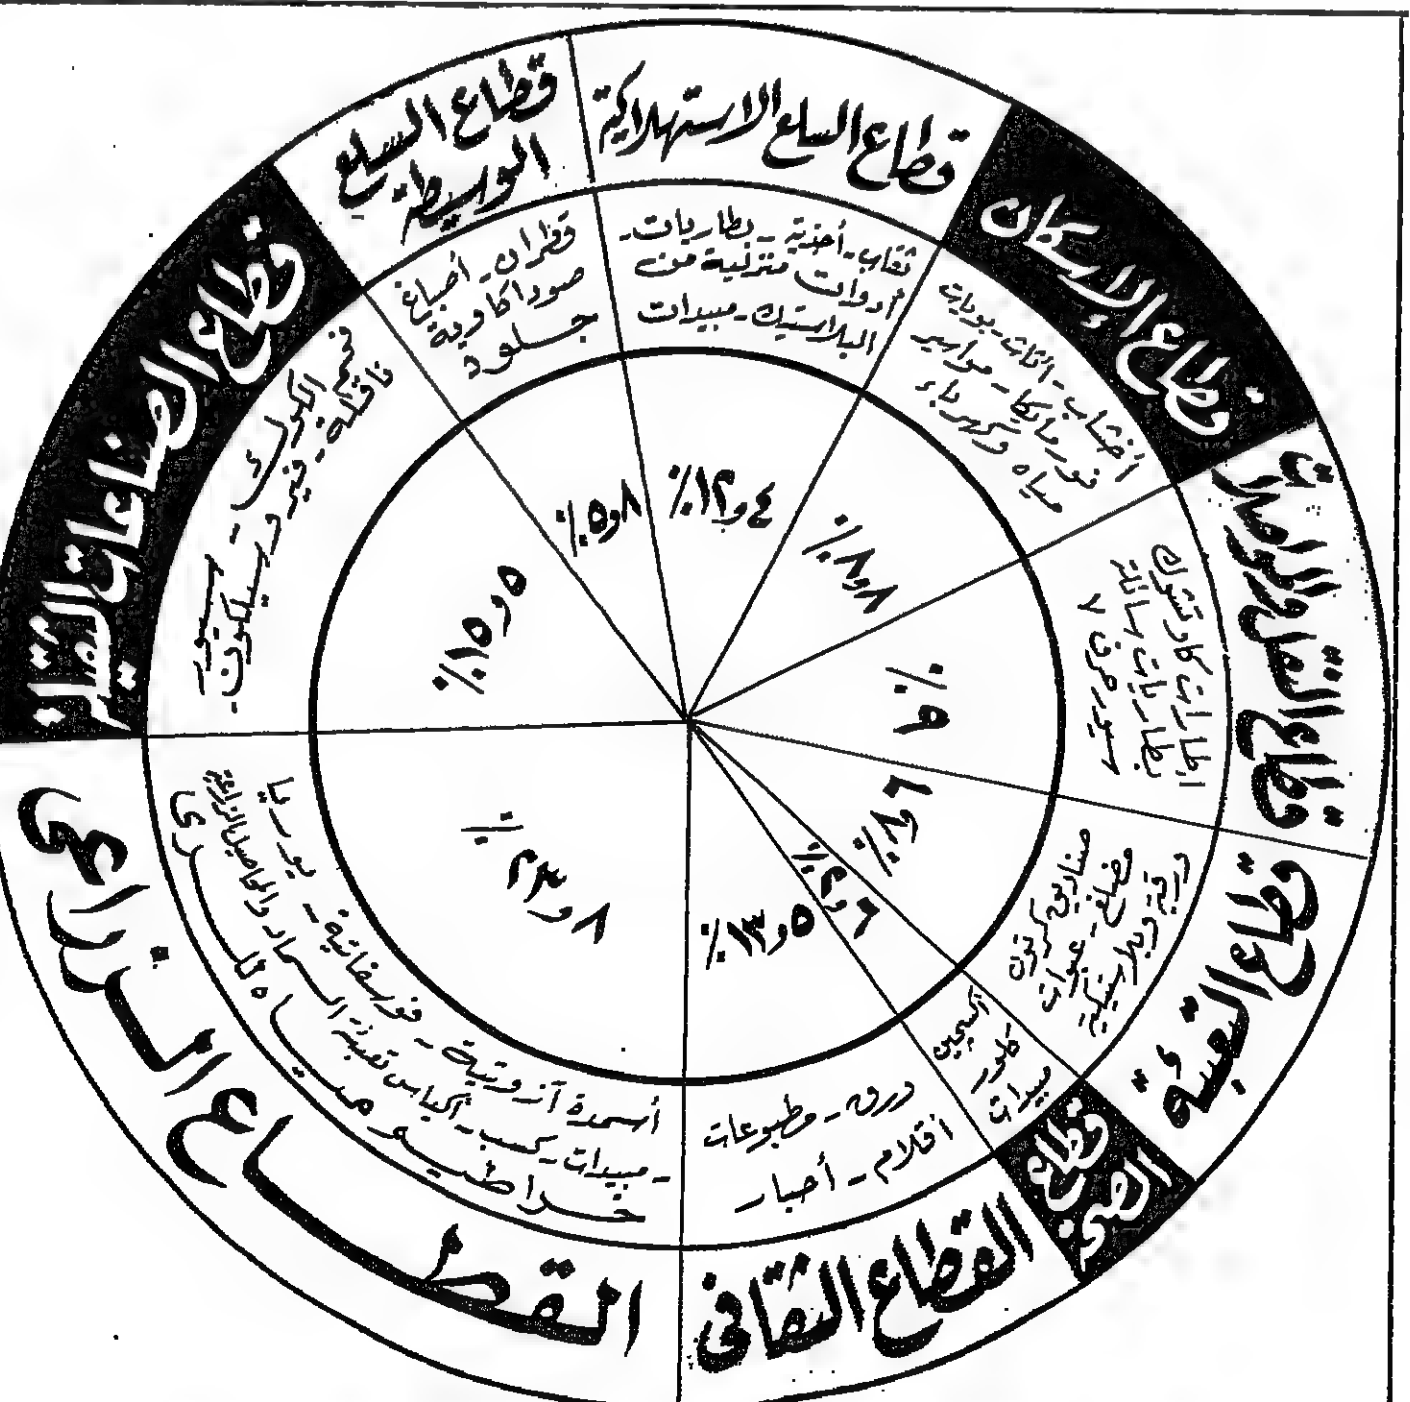 قطاع السلع الاستهلاكية
ثقاب - أحذية - بطاريات -
أدوات منزلية من
البلاستيك - مبيدات
٤و١٢٪
قطاع الإسكان
أخشاب - اثاث - بويات
فورمايكا - مواسير
مياه وكهرباء
٨و٨٪
قطاع النقل والمواصلات
اطارات كاوتشوك
بطاريات سائلة
سيور حرف ٧
٩٪
قطاع التعبئة
صناديق كرتون
مضلع - عبوات
ورقية وبلاستيكية
٦و٨٪
قطاع الصحي
أكسجين
كلور
مبيدات
٦و٢٪
القطاع الثقافى
ورق - مطبوعات
أقلام - أحبار
٥و١٣٪
القطاع الزراعى
أسمدة آزوتية - فوسفاتية - يوريا
- مبيدات - كسب - أكياس تعبئة السماد والمحاصيل الزراعية
خراطيم مياه للرى
٨و٢٣٪
قطاع الصناعات الثقيلة
فحم الكوك - سيور
ناقلة - فيروسيلكون -
٥و١٥٪
قطاع السلع
الوسيطة
قطران - أصباغ
صودا كاوية
جلود
٨و٥٪